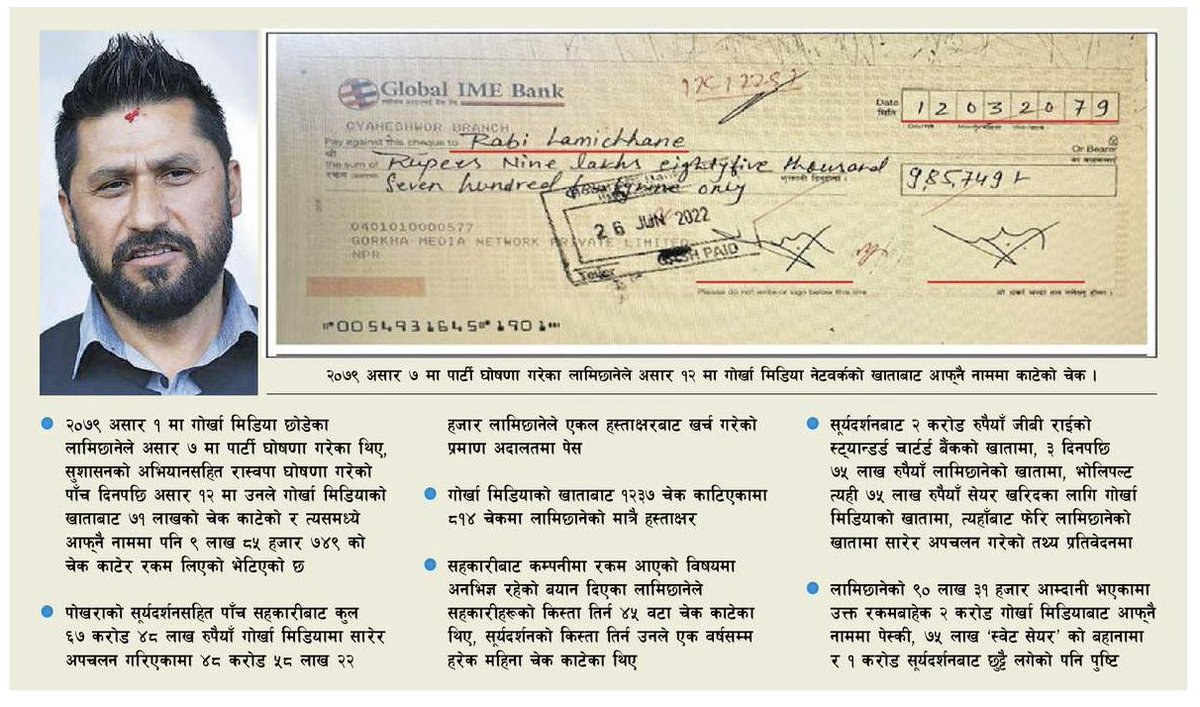 Global IME Bank
Date
मिति
12032079
GYANESHWOR BRANCH
Pay against this cheque to Rabi Lamichhane
Or Bearer
the sum of Rupees Nine lakhs eightyfive thousand
Seven hundred fortynine only
9,85,749/-
26 JUN 2022
CASH PAID
Teller
0401010000577
GORKHA MEDIA NETWORK PRIVATE LIMITED
NPR
Please do not write or sign below this line
⑈0054931645⑈1901⑈
२०७९ असार ७ मा पार्टी घोषणा गरेका लामिछानेले असार १२ मा गोर्खा मिडिया नेटवर्कको खाताबाट आफ्नै नाममा काटेको चेक ।
● २०७९ असार १ मा गोर्खा मिडिया छोडेका
लामिछानेले असार ७ मा पार्टी घोषणा गरेका थिए,
सुशासनको अभियानसहित रास्वपा घोषणा गरेको
पाँच दिनपछि असार १२ मा उनले गोर्खा मिडियाको
खाताबाट ७१ लाखको चेक काटेको र त्यसमध्ये
आफ्नै नाममा पनि ९ लाख ८५ हजार ७४९ को
चेक काटेर रकम लिएको भेटिएको छ
● पोखराको सूर्यदर्शनसहित पाँच सहकारीबाट कुल
६७ करोड ४८ लाख रुपैयाँ गोर्खा मिडियामा सारेर
अपचलन गरिएकामा ४८ करोड ५८ लाख २२
हजार लामिछानेले एकल हस्ताक्षरबाट खर्च गरेको
प्रमाण अदालतमा पेस
● गोर्खा मिडियाको खाताबाट १२३७ चेक काटिएकामा
८१४ चेकमा लामिछानेको मात्रै हस्ताक्षर
● सहकारीबाट कम्पनीमा रकम आएको विषयमा
अनभिज्ञ रहेको बयान दिएका लामिछानेले
सहकारीहरूको किस्ता तिर्न ४५ वटा चेक काटेका
थिए, सूर्यदर्शनको किस्ता तिर्न उनले एक वर्षसम्म
हरेक महिना चेक काटेका थिए
● सूर्यदर्शनबाट २ करोड रुपैयाँ जीबी राईको
स्ट्यान्डर्ड चार्टर्ड बैंकको खातामा, ३ दिनपछि
७५ लाख रुपैयाँ लामिछानेको खातामा, भोलिपल्ट
त्यही ७५ लाख रुपैयाँ सेयर खरिदका लागि गोर्खा
मिडियाको खातामा, त्यहाँबाट फेरि लामिछानेको
खातामा सारेर अपचलन गरेको तथ्य प्रतिवेदनमा
● लामिछानेको ९० लाख ३१ हजार आम्दानी भएकामा
उक्त रकमबाहेक २ करोड गोर्खा मिडियाबाट आफ्नै
नाममा पेस्की, ७५ लाख ‘स्वेट सेयर’ को बहानामा
र १ करोड सूर्यदर्शनबाट छुट्टै लगेको पनि पुष्टि